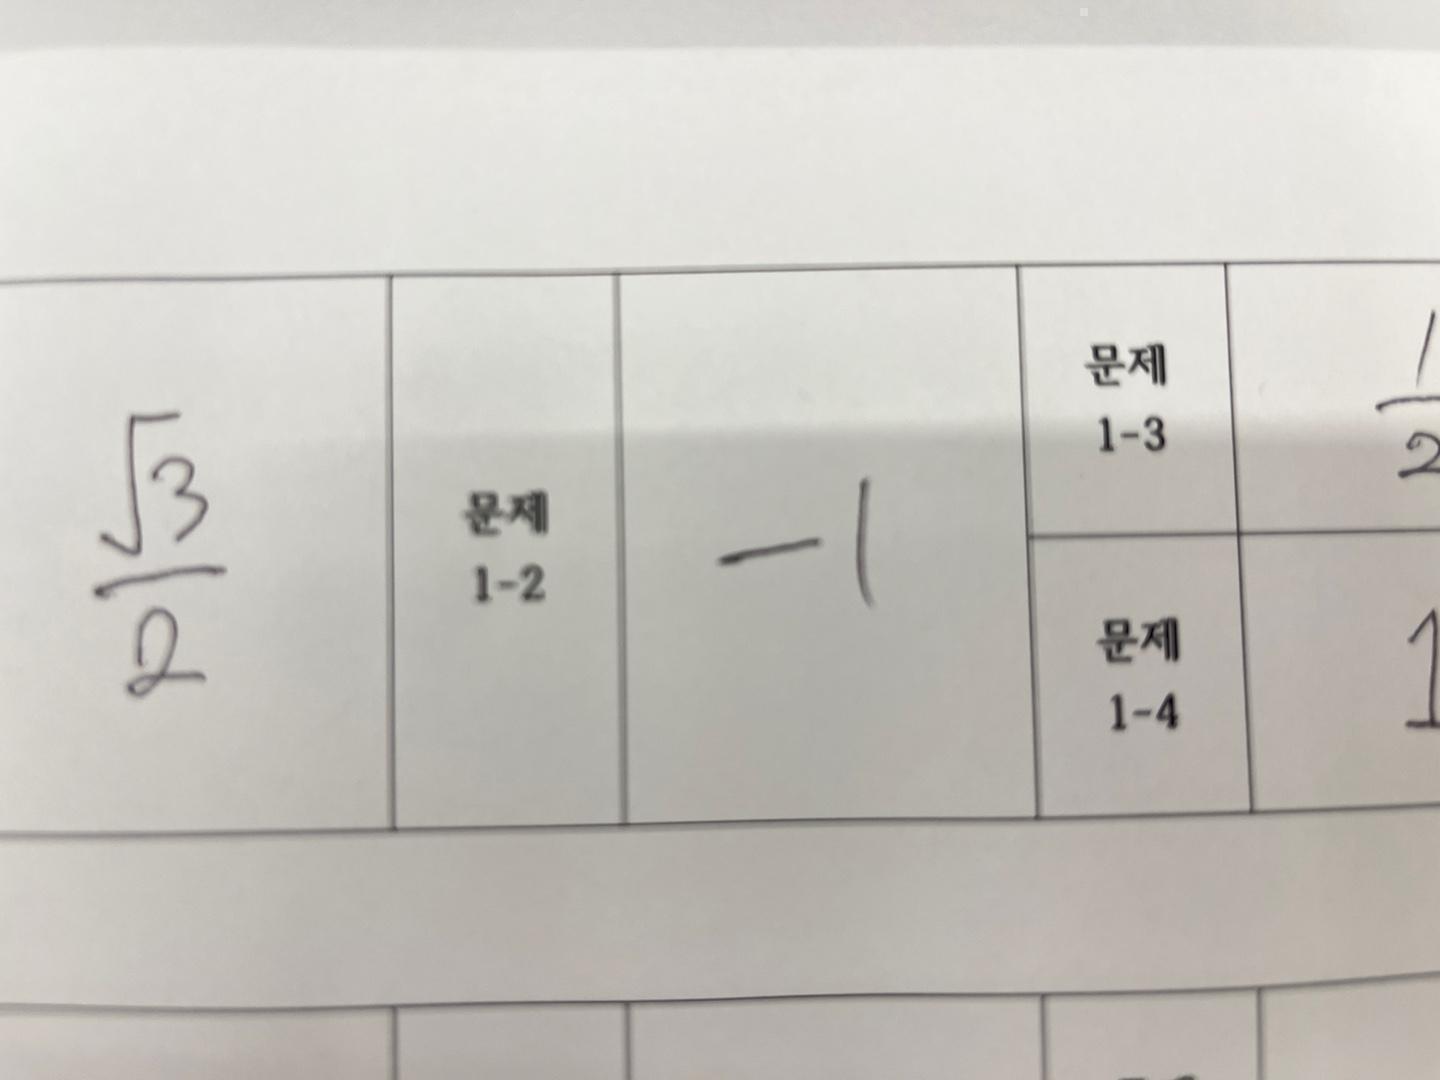 √3/2
문제
1-2
-1
문제
1-3
1/2
문제
1-4
1